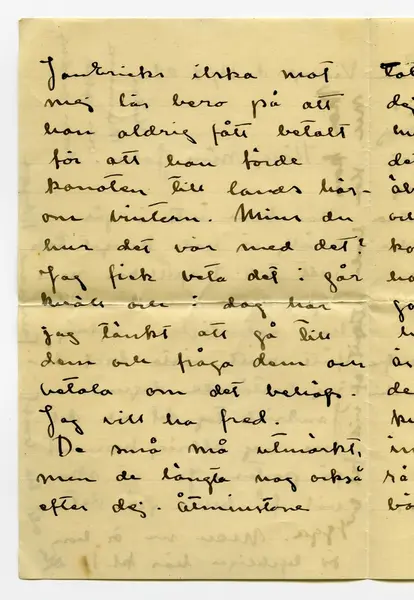 JanEricks ilska mot
mej lär bero på att
han aldrig fått betalt
för att han förde
kanoten till lands här-
om vintern. Minns du
hur det var med det?
Jag fick veta det i går
kväll och i dag har
jag tänkt att gå till
dem och fråga dem och
betala om det behöfs.
Jag vill ha fred.
De små må utmärkt,
men de längta nog också
efter dej. Åtminstone